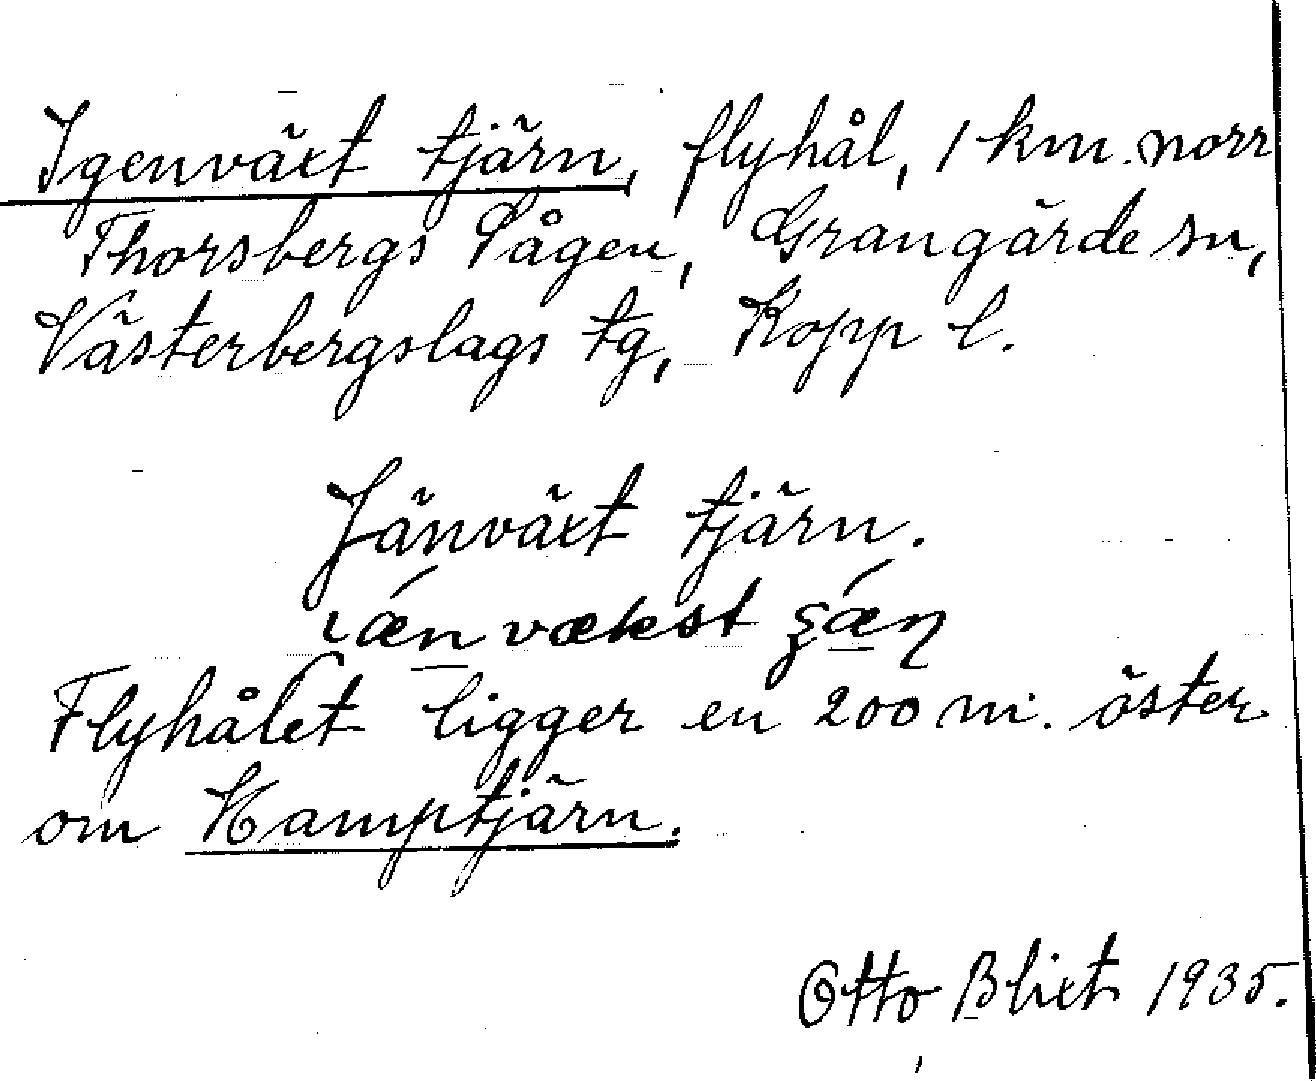 Igenväxt tjärn, flyhål, 1 km. norr
Thorsbergs Sågen, Grangärde sn,
Västerbergslags tg, Kopp l.
Jänväxt tjärn.
Flyhålet ligger en 200 m. öster
om Kamptjärn.
Otto Blixt 1935.